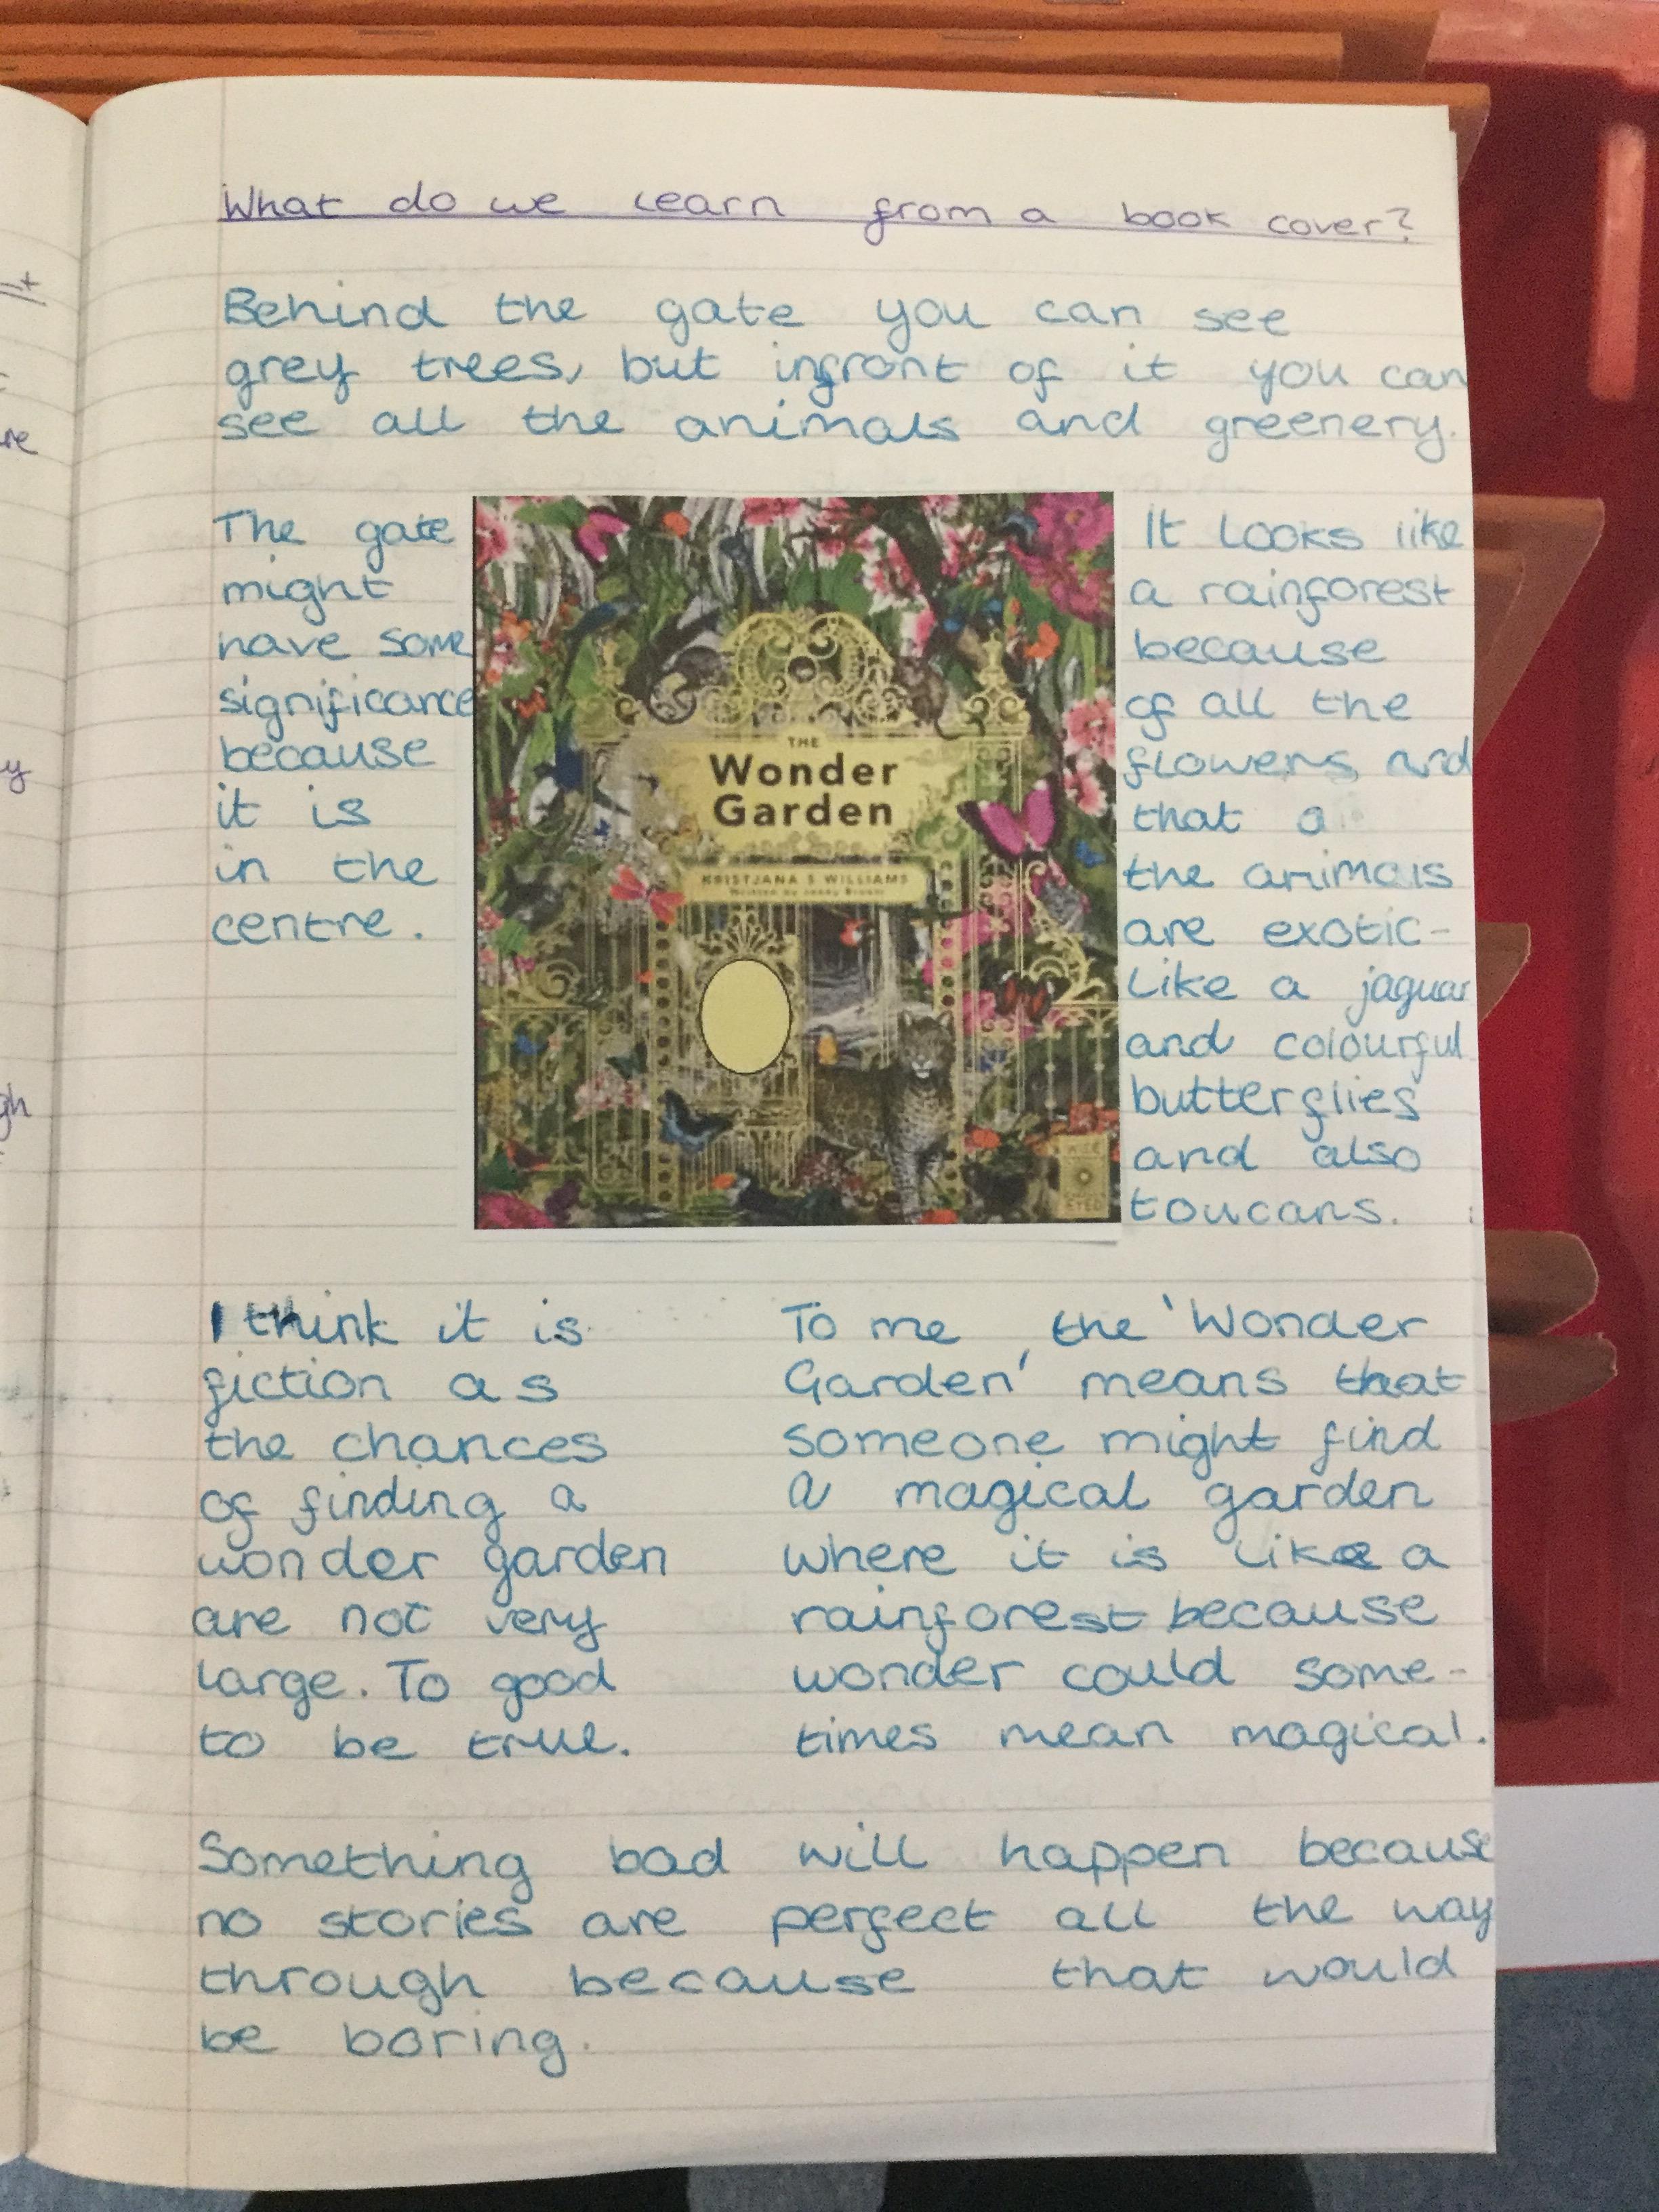 What do we learn from a book cover?
Behind the gate you can see
grey trees, but infront of it you can
see all the animals and greenery.
The gate
might
have some
significance
because
it is
in the
centre.
THE
Wonder
Garden
KRISTJANA S WILLIAMS
Written by Jenny Broom
WIDE
EYED
It looks like
a rainforest
because
of all the
flowers and
that a
the animals
are exotic-
like a jaguar
and colourful
butterflies
and also
toucans.
I think it is
fiction as
the chances
of finding a
wonder garden
are not very
large. To good
to be true.
To me, the 'Wonder
Garden' means that
someone might find
a magical garden
where it is like a
rainforest because
wonder could some-
times mean magical.
Something bad will happen because
no stories are perfect all the way
through because that would
be boring.